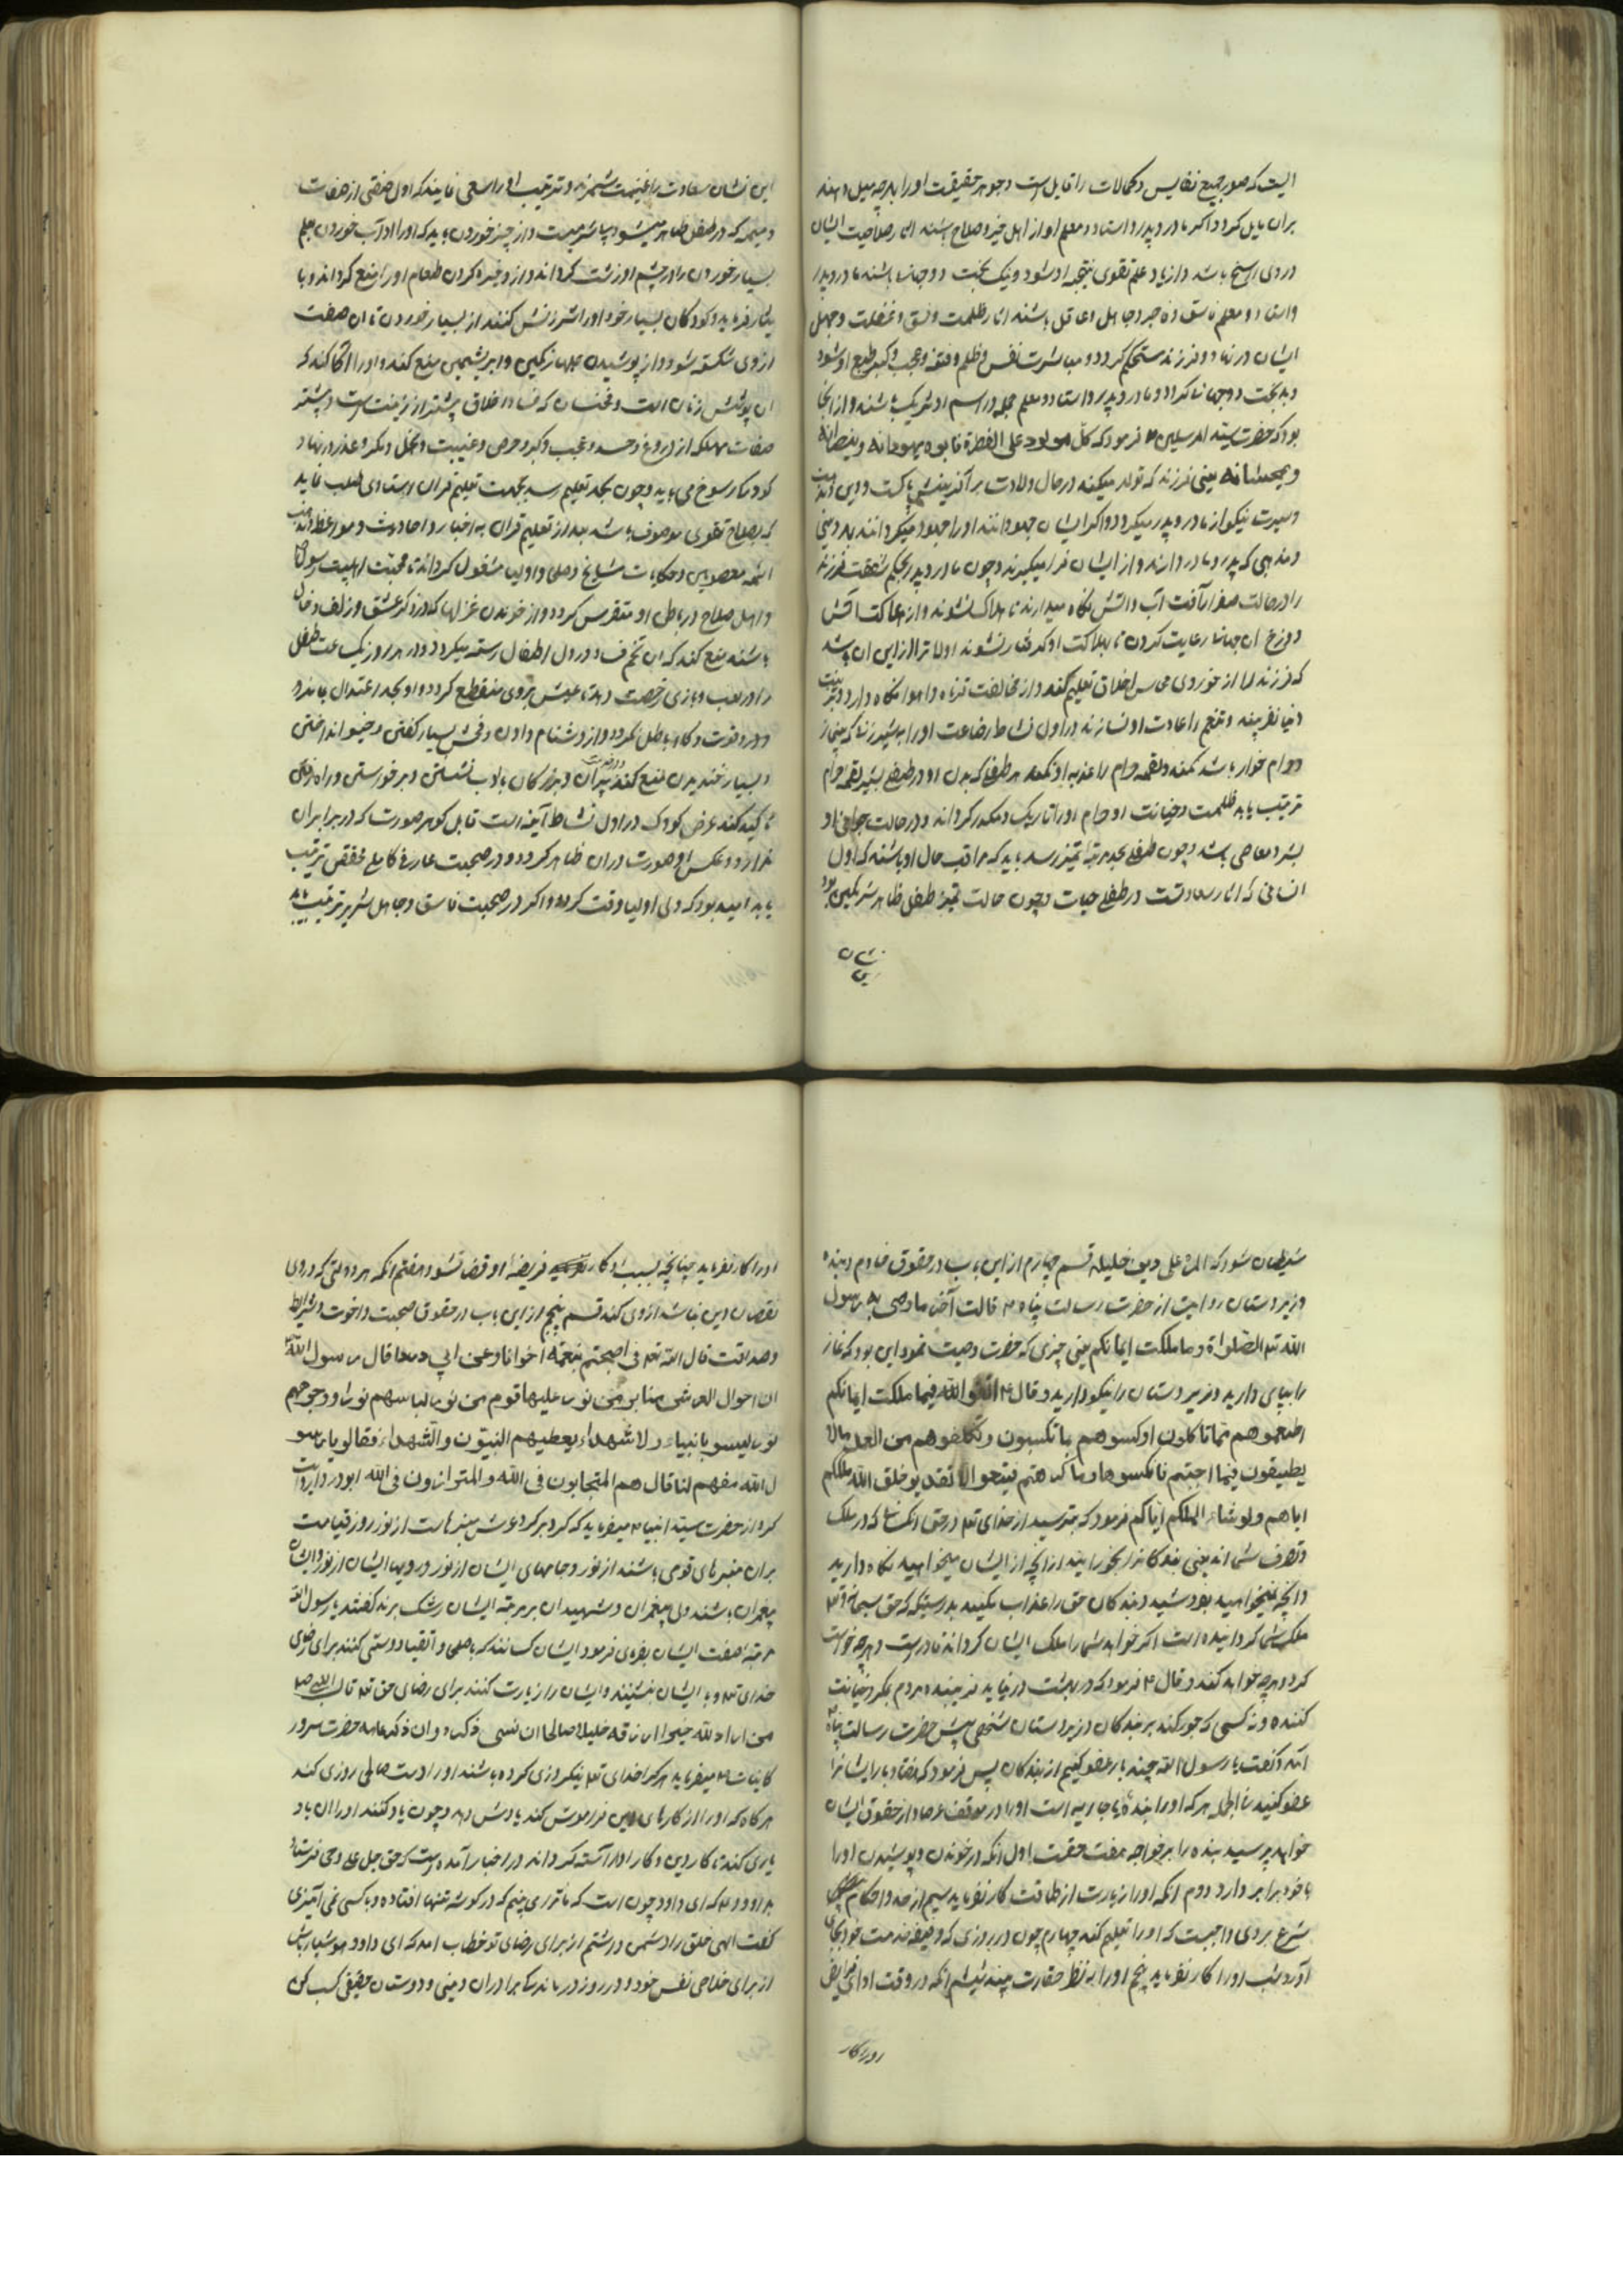 الیت که صور جمیع نفایس و کمالات را قابل است و جوهر حقیقت او را بهر چه میل دهند
بران مایل کردد اکر مادر و پدر و استاد و معلم او از اهل خیر و صلاح باشند اثار صلاحیت ایشان
در وی راسخ باشد و از یاد علم تقوی نتیجه او شود و نیک بخت دو جهان باشند مادر و پدر
و استاد و معلم فاسق و فاجر و جاهل و غافل باشند اثار ظلمت و فسق و غفلت و جهل
ایشان در نهاد و فرزند مستحکم کردد و مباشرت نفس و ظلم و فتنه و عجب و کبر طبع او شود
و بدبخت دو جهان کردد و مادر و پدر و استاد و معلم جمله در اسم او شریک باشند و از اینجا
بود که حضرت سید المرسلین فرمود که کل مولود علی الفطرة فابوه یهودانه و ینصرانه
و یمجسانه یعنی فرزند که تولد میکند در حال ولادت بر آفرینش پاکست و دین
و سیرت نیکو از مادر و پدر میکیرد و اکر ایشان جهودانند او را جهود میکردانند بد دینی
و مذهبی که پدر و مادر دارند و از ایشان فرا میکیرند و چون مادر و پدر بحکم شفقت فرزند
را در حالت صغر از آفت آب و آتش نکاه میدارند تا هلاک نشوند و از هلاکت آتش
دوزخ ان جهان رعایت کردن تا بهلاکت او کرفتار نشوند اولاتر از این ان باشد
که فرزند را از خوردی محاسن اخلاق تعلیم کنند و از مخالفت نکاه دارد
دنیا نفریبند و تنعم را عادت او نسازند در اول نشاط رضاعت او را بشیر زنا که
حرام خوار باشد نکنند و لقمه حرام را غذای او نکنند هر طفلی که بدن او در طفلی بشیر لقمه حرام
ترتیب یابد ظلمت و خیانت او حرام او را تاریک و مکدر کرداند و در حالت جوانی او
بشر و معاصی باشد و چون طفل بحد مرتبه تمیز رسد باید که مراقب حال او باشند که اول
انسانی که اثار سعادتست در طفل حیات و چون حالت تمیز طفل ظاهر شد
نشان
این
این نشان سعادت را غنیمت شمرند و ترتیب او را سعی نمایند که اول صفتی از صفات
ذمیمه که در طفل ظاهر میشود بیشرمیست و از چیز خوردن باید که او را اداب خوردن تعلیم
بسیار خوردن را در چشم او زشت کرداند و از ذخیره کردن طعام او را منع کرداند و با
یکبار فرماید و کودکان بسیار خور او را سرزنش کنند از بسیار خوردن تا ان صفت
از وی شکسته شود و از پوشیدن جامهای رنکین و ابریشمین منع کند و او را آکاه کند که
ان پوشش زنان است و مخنثان که فساد اخلاق بیشتر از زینت است و بیشتر
صفات مهلکه از دروغ و حسد و عجب و کبر و حرص و غیبت و بخل و مکر و غدر در نهاد
کودک رسوخ می یابد و چون بحد تعلیم رسد بجهت تعلیم قران استادی طلب نماید
که بصلاح تقوی موصوف باشد بعد از تعلیم قران به اخبار و احادیث و مواعظ و
ائمه معصومین و حکایات مشایخ و صلحا و اولیا مشغول کرداند تا محبت اهلبیت رسول
و اهل صلاح در باطن او متفرس کردد و از خواندن غزلها که در ذکر عشق و زلف و خال
باشند منع کند که ان تخم فساد در دل اطفال رسته میکردد و در هر روز یک ساعت طفل
را در لعب و بازی رخصت دهد تا عیش بر وی منقطع نکردد و او بحد اعتدال بماند و
و در قوت و کاهلی باطل نکردد و از دشنام دادن و فحش بسیار کفتن و خیو انداختن
و بسیار خندیدن منع کند و در حضور پیران و بزرکان با ادب نشستن و برخواستن و راه رفتن
تاکید کند غرض کودک در اول نشاط آینه الست قابل که هر صورت که در برابر ان
بدارد عکس او صورت در ان ظاهر کردد و در صحبت عارف کامل محقق ترتیب
یابد امید بود که ولی اولیا وقت کردد و اکر در صحبت فاسق و جاهل شریر ترتیب یابد
شیطان شود که المرء علی دین خلیله قسم چهارم از این باب در حقوق خادم و بنده
و زیردستان روایت از حضرت رسالت پناه قالت آخر ما وصی به رسول
الله الصلواة و ما ملکت ایمانکم یعنی چیزی که حضرت وصیت نمود این بود که نماز
را بپای دارید و زیردستان را نیکو دارید و قال اتقوا الله فیما ملکت ایمانکم
اطعموهم مما تاکلون و اکسوهم ما تکسبون و تکلفوهم من العمل مالا
یطیقون فیما احببتم فامسکوها و ما کرهتم فبیعوا لا تعذبو خلق الله ملککم
ایاهم و لو شاء لملکهم ایاکم فرمود که بترسید از خدای تع در حق انکسانیکه در ملک
و تصرف شما اند یعنی بندکانرا بخورانید از انچه از ایشان میخواهید نکاه دارید
و انچه نمیخواهید بفروشید و بندکان حق را عذاب مکنید بدرستیکه که حق سبحانه و تع
ملک شما کردانیده است اکر خواهد شما را ملک ایشان کرداند قادر است و هرچه خواست
کرد و هرچه خواهد کند و قال فرمود که در بهشت در نیاید فریبنده مردم بمکر و خیانت
کننده و نه کسی که جور کند بر بندکان و زیردستان شخصی پیش حضرت رسالت پناه
آمد و کفت یا رسول الله چند بار عفو کنیم از بندکان پس فرمود که هفتاد بار ایشانرا
عفو کنید فی الجمله هر که او را بنده یا جاریه است او را در موقف عرصات از حقوق ایشان
خواهد پرسید بنده را بر خواجه هفت حقست اول انکه در خوردن و پوشیدن او را
با خود برابر دارد دوم انکه او را زیادت از طاقت کار نفرماید سیم از حد و احکام
شرع بر وی واجبست که او را تعلیم کند چهارم چون در روزی که وظیفه خدمت خود بجای
آورد شب او را کار نفرماید پنجم او را به نظر حقارت نبیند ششم انکه در وقت ادای فرایض
او را کار
او را کار نفرماید چنانچه بسبب او کار فریضه او قوت نشود هفتم انکه هر دولتی که در وی
نقصان دین نباشد از وی کند قسم پنجم از این باب در حقوق صحبت و اخوت و شرایط
و صداقت قال الله تع فاصبحتم بنعمته اخوانا و عن ابی قال رسول الله
ان احوال العرش منابر من نور علیها قوم من نور لباسهم نور و وجوههم
نور لیسو بانبیاء و لا شهداء یعطیهم النبیون و الشهداء فقالو یا رسو
ل الله صفهم لنا قال هم المتحابون فی الله و المتوازون فی الله ابودردا روایت
کرد از حضرت سید انبیا میفرماید که کرد بر کرد عرش منبرهاست از نور روز قیامت
بران منبرهای قومی باشند از نور و جامهای ایشان از نور و رویها ایشان از نور و ایشان
پیغمبران باشند ولی پیغمبران و شهیدان بر مرتبه ایشان رشک برند کفتند یا رسول الله
مرتبه صفت ایشان بفرمای فرمود ایشان کسانند که با صلحا و اتقیا دوستی کنند برای رضای
خدای تع و با ایشان بنشینند و ایشان را زیارت کنند برای رضای حق تع قال النبی
من اراد لله خیرا ارزقه خلیلا صالحا ان نسی ذکره و ان ذکر عانه حضرت سرور
کاینات میفرماید هر که را خدای تع نیکروزی کرده باشند او را دوست صالحی روزی کند
هر کاه که او را از کارهای دین فراموش کند یادش دهد و چون یاد کنند او را ان یاد
یاری کند تا کار دین و کار او را آسته کرداند در اخبار آمده است که حق جل علی وحی فرستاد
بداوود که ای داود چون است که ما ترا می بینم که در کوشه تنها افتاده و با کسی نمی آمیزی
کفت الهی خلق را دشمن داشتم از برای رضای تو خطاب امد که ای داود هوشیار باش
از برای خلاصی نفس خود و در روز درماندکی برادران دینی و دوستان حقیقی کسب کن